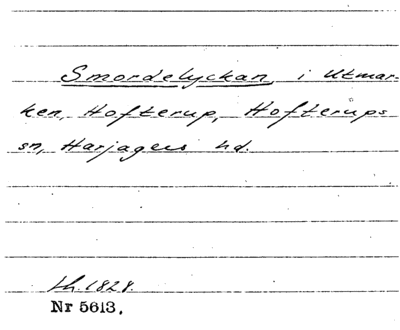 Smordelyckan i Utmar-
ken, Hofterup, Hofterups
sn, Harjagers hd.
Lh. 1828.
Nr 5613.